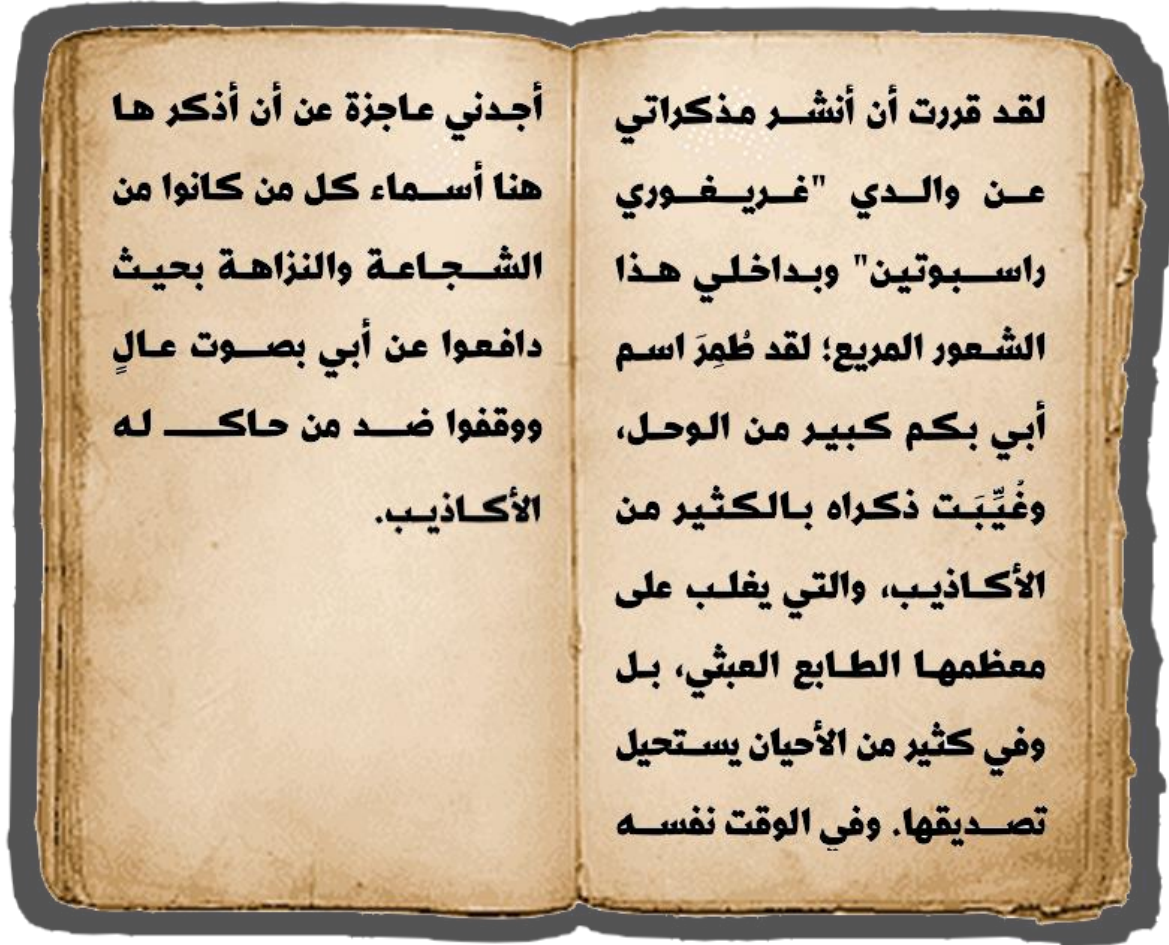 لقد قررت أن أنشر مذكراتي
عن والدي "غريغوري
راسبوتين" وبداخلي هذا
الشعور المريع؛ لقد طُمِرَ اسم
أبي بكم كبير من الوحل،
وغُيِّبَت ذكراه بالكثير من
الأكاذيب، والتي يغلب على
معظمها الطابع العبثي، بل
وفي كثير من الأحيان يستحيل
تصديقها. وفي الوقت نفسه
أجدني عاجزة عن أن أذكر ها
هنا أسماء كل من كانوا من
الشجاعة والنزاهة بحيث
دافعوا عن أبي بصوت عالٍ
ووقفوا ضد من حاك له
الأكاذيب.